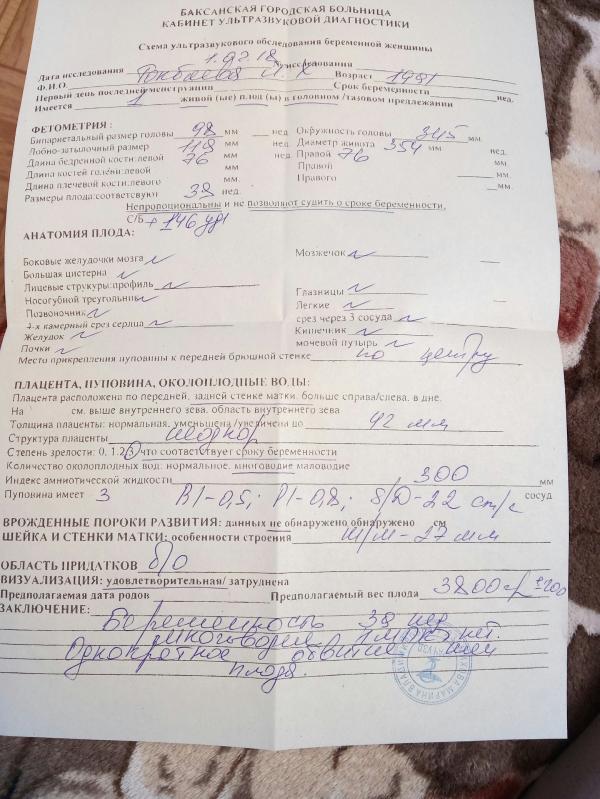 БАКСАНСКАЯ ГОРОДСКАЯ БОЛЬНИЦА
КАБИНЕТ УЛЬТРАЗВУКОВОЙ ДИАГНОСТИКИ
Схема ультразвукового обследования беременной женщины
Дата исследования 1.02.18 исследования
Ф.И.О. Возраст 1991
Первый день последней менструации Срок беременности нед.
Имеется 1 живой (ые) плод (ы) в головном /тазовом предлежании
ФЕТОМЕТРИЯ :
Бипариетальный размер головы 98 мм нед. Окружность головы 345 мм.
Лобно-затылочный размер 118 мм нед. Диаметр живота 354 мм. нед.
Длина бедренной кости:левой 76 мм нед. Правой 76 мм.
Длина костей голени:левой мм. Правой мм.
Длина плечевой кости:левого мм. Правого мм.
Размеры плода:соответсвуют 38 нед.
Непропоциональны и не позволяют судить о сроке беременности,
С/Б + 146 уд/
АНАТОМИЯ ПЛОДА:
Боковые желудочки мозга N Мозжечок N
Большая цистерна N
Лицевые струкуры:профиль N Глазницы N
Носогубной треугольник N Легкие N
Позвоночник N срез через 3 сосуда N
4-х камерный срез сердца N Кишечник N
Желудок N мочевой пузырь N
Почки N
Место прикрепления пуповины к передней брюшной стенке по центру
ПЛАЦЕНТА, ПУПОВИНА, ОКОЛОПЛОДНЫЕ ВОДЫ:
Плацента расположена по передней, задней стенке матки, больше справа/слева, в дне.
На см. выше внутреннего зева, область внутреннего зева
Толщина плаценты: нормальная, уменьшена /увеличена до 42 мм
Структура плаценты неоднор
Степень зрелости: 0, 1.2.3, что соотаствует сроку беременности
Количество околоплодных вод: нормальное, многоводие маловодие
Индекс амниотической жидкости 300 мм
Пуповина имеет 3 сосуд
ВРОЖДЕННЫЕ ПОРОКИ РАЗВИТИЯ: данных не обнаружено обнаружено см
ШЕЙКА И СТЕНКИ МАТКИ: особенности строения Ш/М-27 мм
ОБЛАСТЬ ПРИДАТКОВ б/о
ВИЗУАЛИЗАЦИЯ: удовлетворительная/ затруднена
Предполагаемая дата родов Предполагаемый вес плода 3800 гр ±200
ЗАКЛЮЧЕНИЕ: Беременность 38 нед
многоводие
Однократное обвитие шеи
плода.